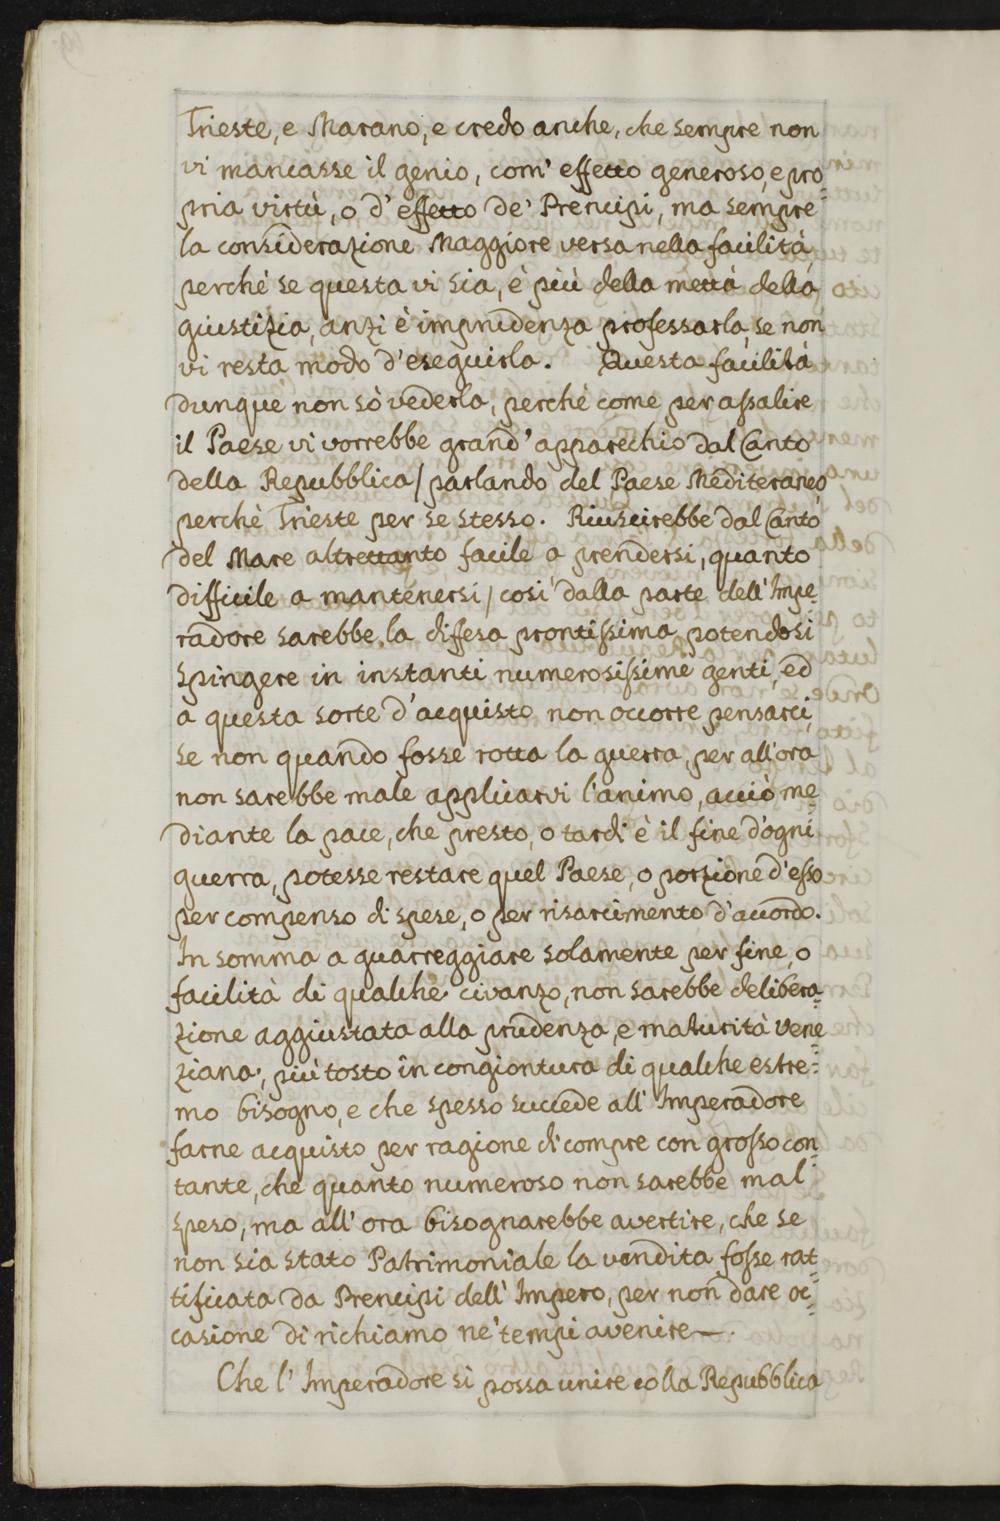 Trieste, e Marano, e credo anche, che sempre non
vi mancasse il genio, com' effetto generoso, e pro
pria virtù, o d' effetto de' Prencipi, ma sempre
la considerazione Maggiore versa nella facilità,
perchè se questa vi sia, è più della mettà della
giustizia, anzi è imprudenza professarla, se non
vi resta modo d'eseguirla. Questa facilità
dunque non sò vederla, perchè come per assalire
il Paese vi vorrebbe grand' apparechio dal Canto
della Repubblica / parlando del Paese Mediteraneo,
perchè Trieste per se stesso. Riuscirebbe dal Canto
del Mare altrettanto facile a prendersi, quanto
difficile a mantenersi / così dalla parte dell' Impe=
radore sarebbe la diffesa prontissima, potendosi
spingere in instanti numerosissime genti, ed
a questa sorte d'acquisto non occorre pensarci,
se non quando fosse rotta la guerra, per all'ora
non sarebbe male applicarvi l'animo, acciò me=
diante la pace, che presto, o tardi è il fine d'ogni
guerra, potesse restare quel Paese, o porzione d'esso
per compenso di spese, o per risarcimento d'accordo.
In somma a guarreggiare solamente per fine, o
facilità di qualche civanzo, non sarebbe delibera=
zione aggiustata alla prudenza, e maturità Vene
ziana, più tosto in congiontura di qualche estre=
mo bisogno, e che spesso succede all' Imperadore
farne acquisto per ragione di compre con grosso con=
tante, che quanto numeroso non sarebbe mal
speso, ma all' ora bisognarebbe avertire, che se
non sia stato Patrimoniale la vendita fosse rat=
tificata da Prencipi dell' Impero, per non dare oc=
casione di richiamo ne' tempi avenire.
Che l' Imperadore si possa unire colla Repubblica